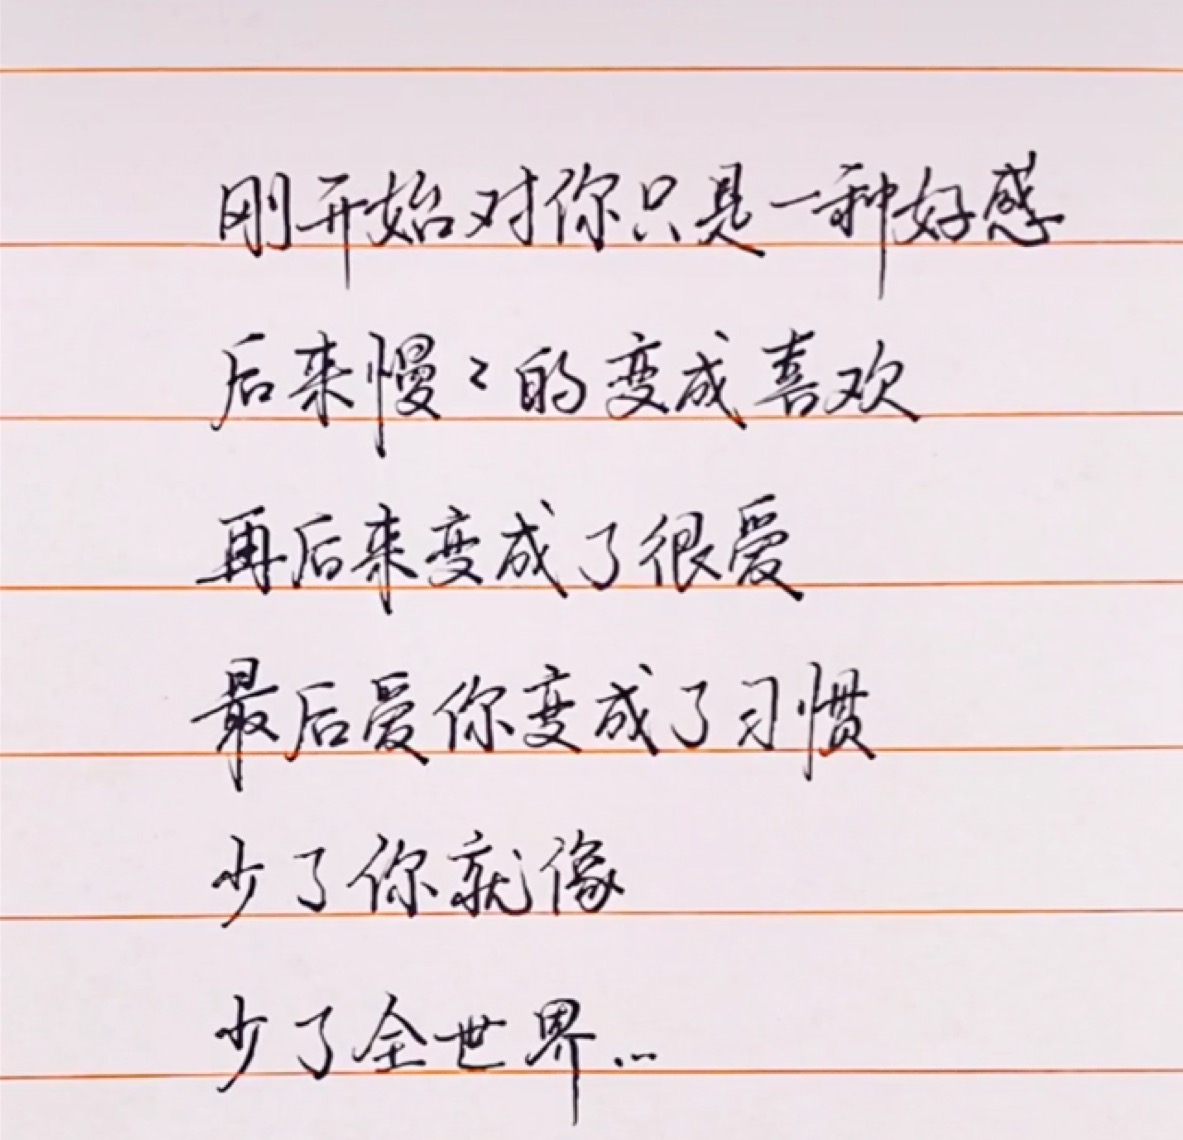 刚开始对你只是一种好感
后来慢々的变成喜欢
再后来变成了很爱
最后爱你变成了习惯
少了你就像
少了全世界...